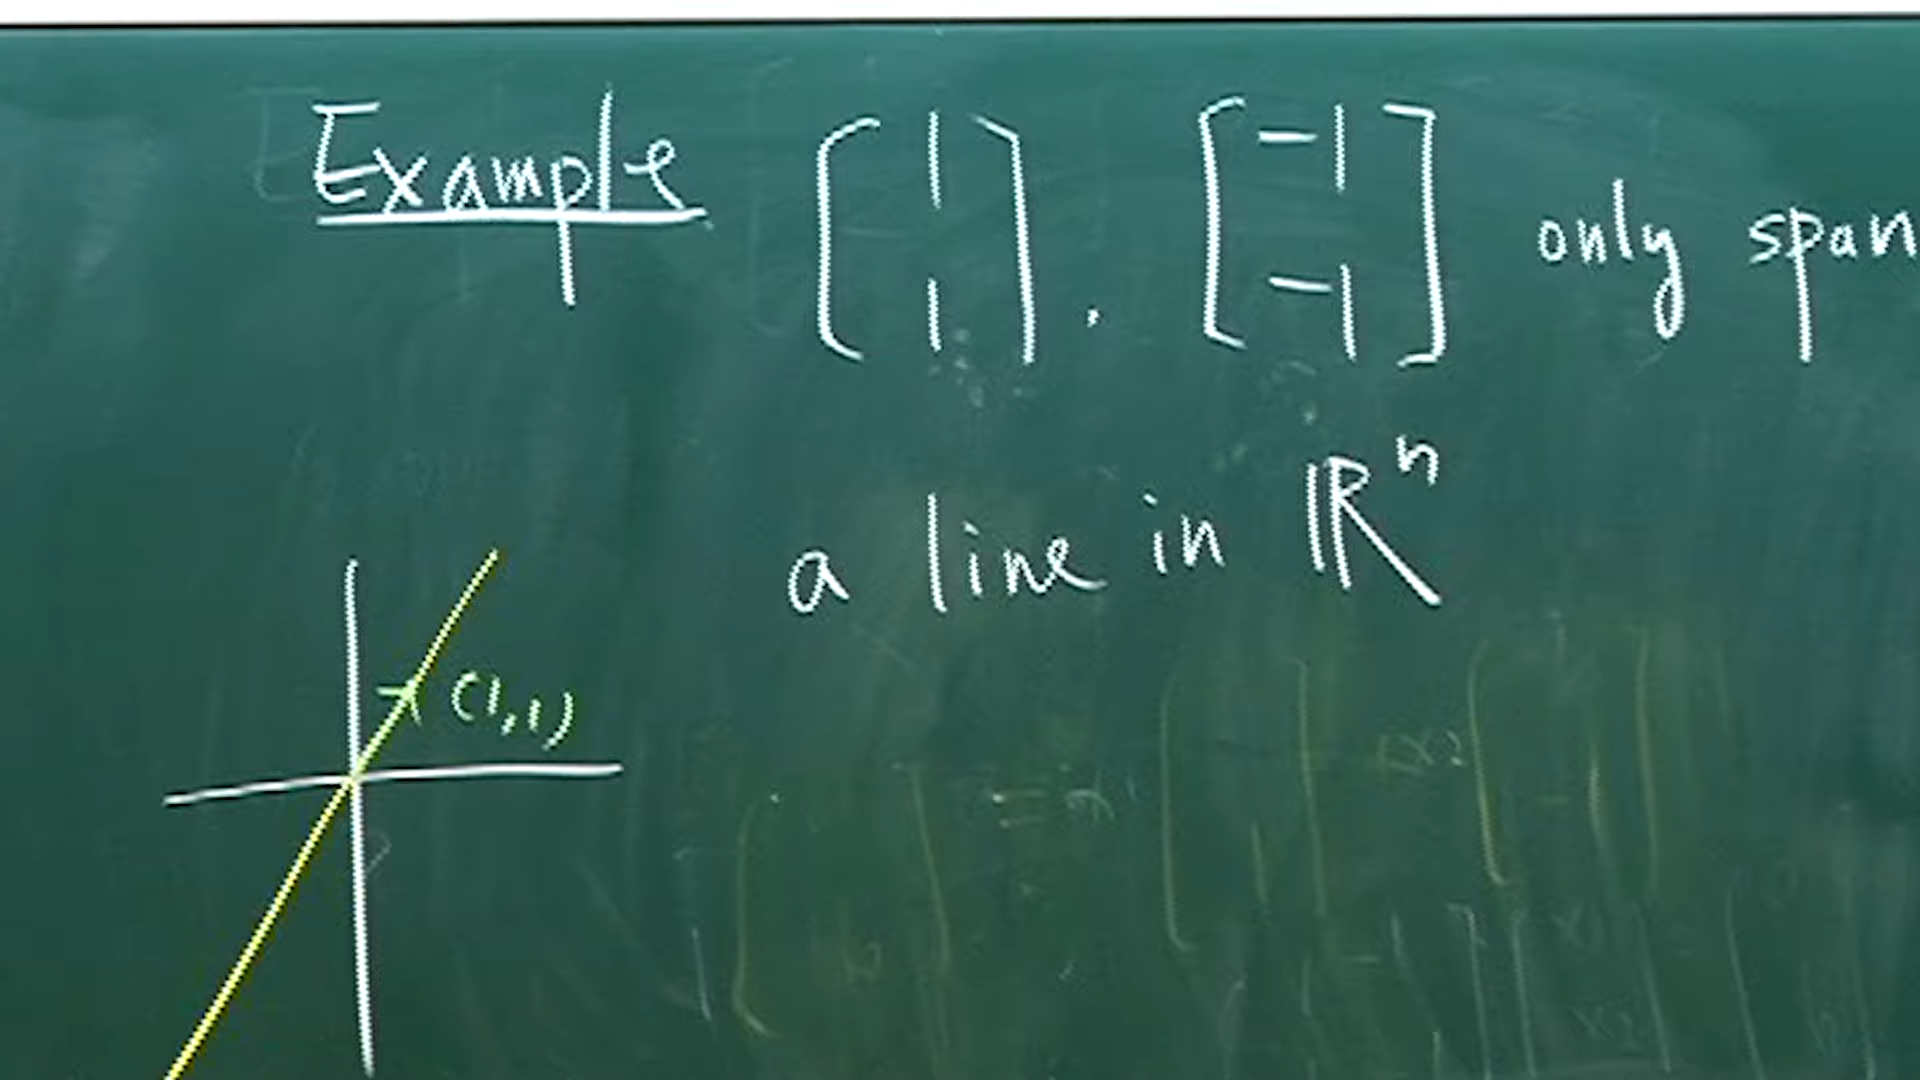 Example [1 1], [-1 -1] only span
a line in ℝⁿ
(1,1)